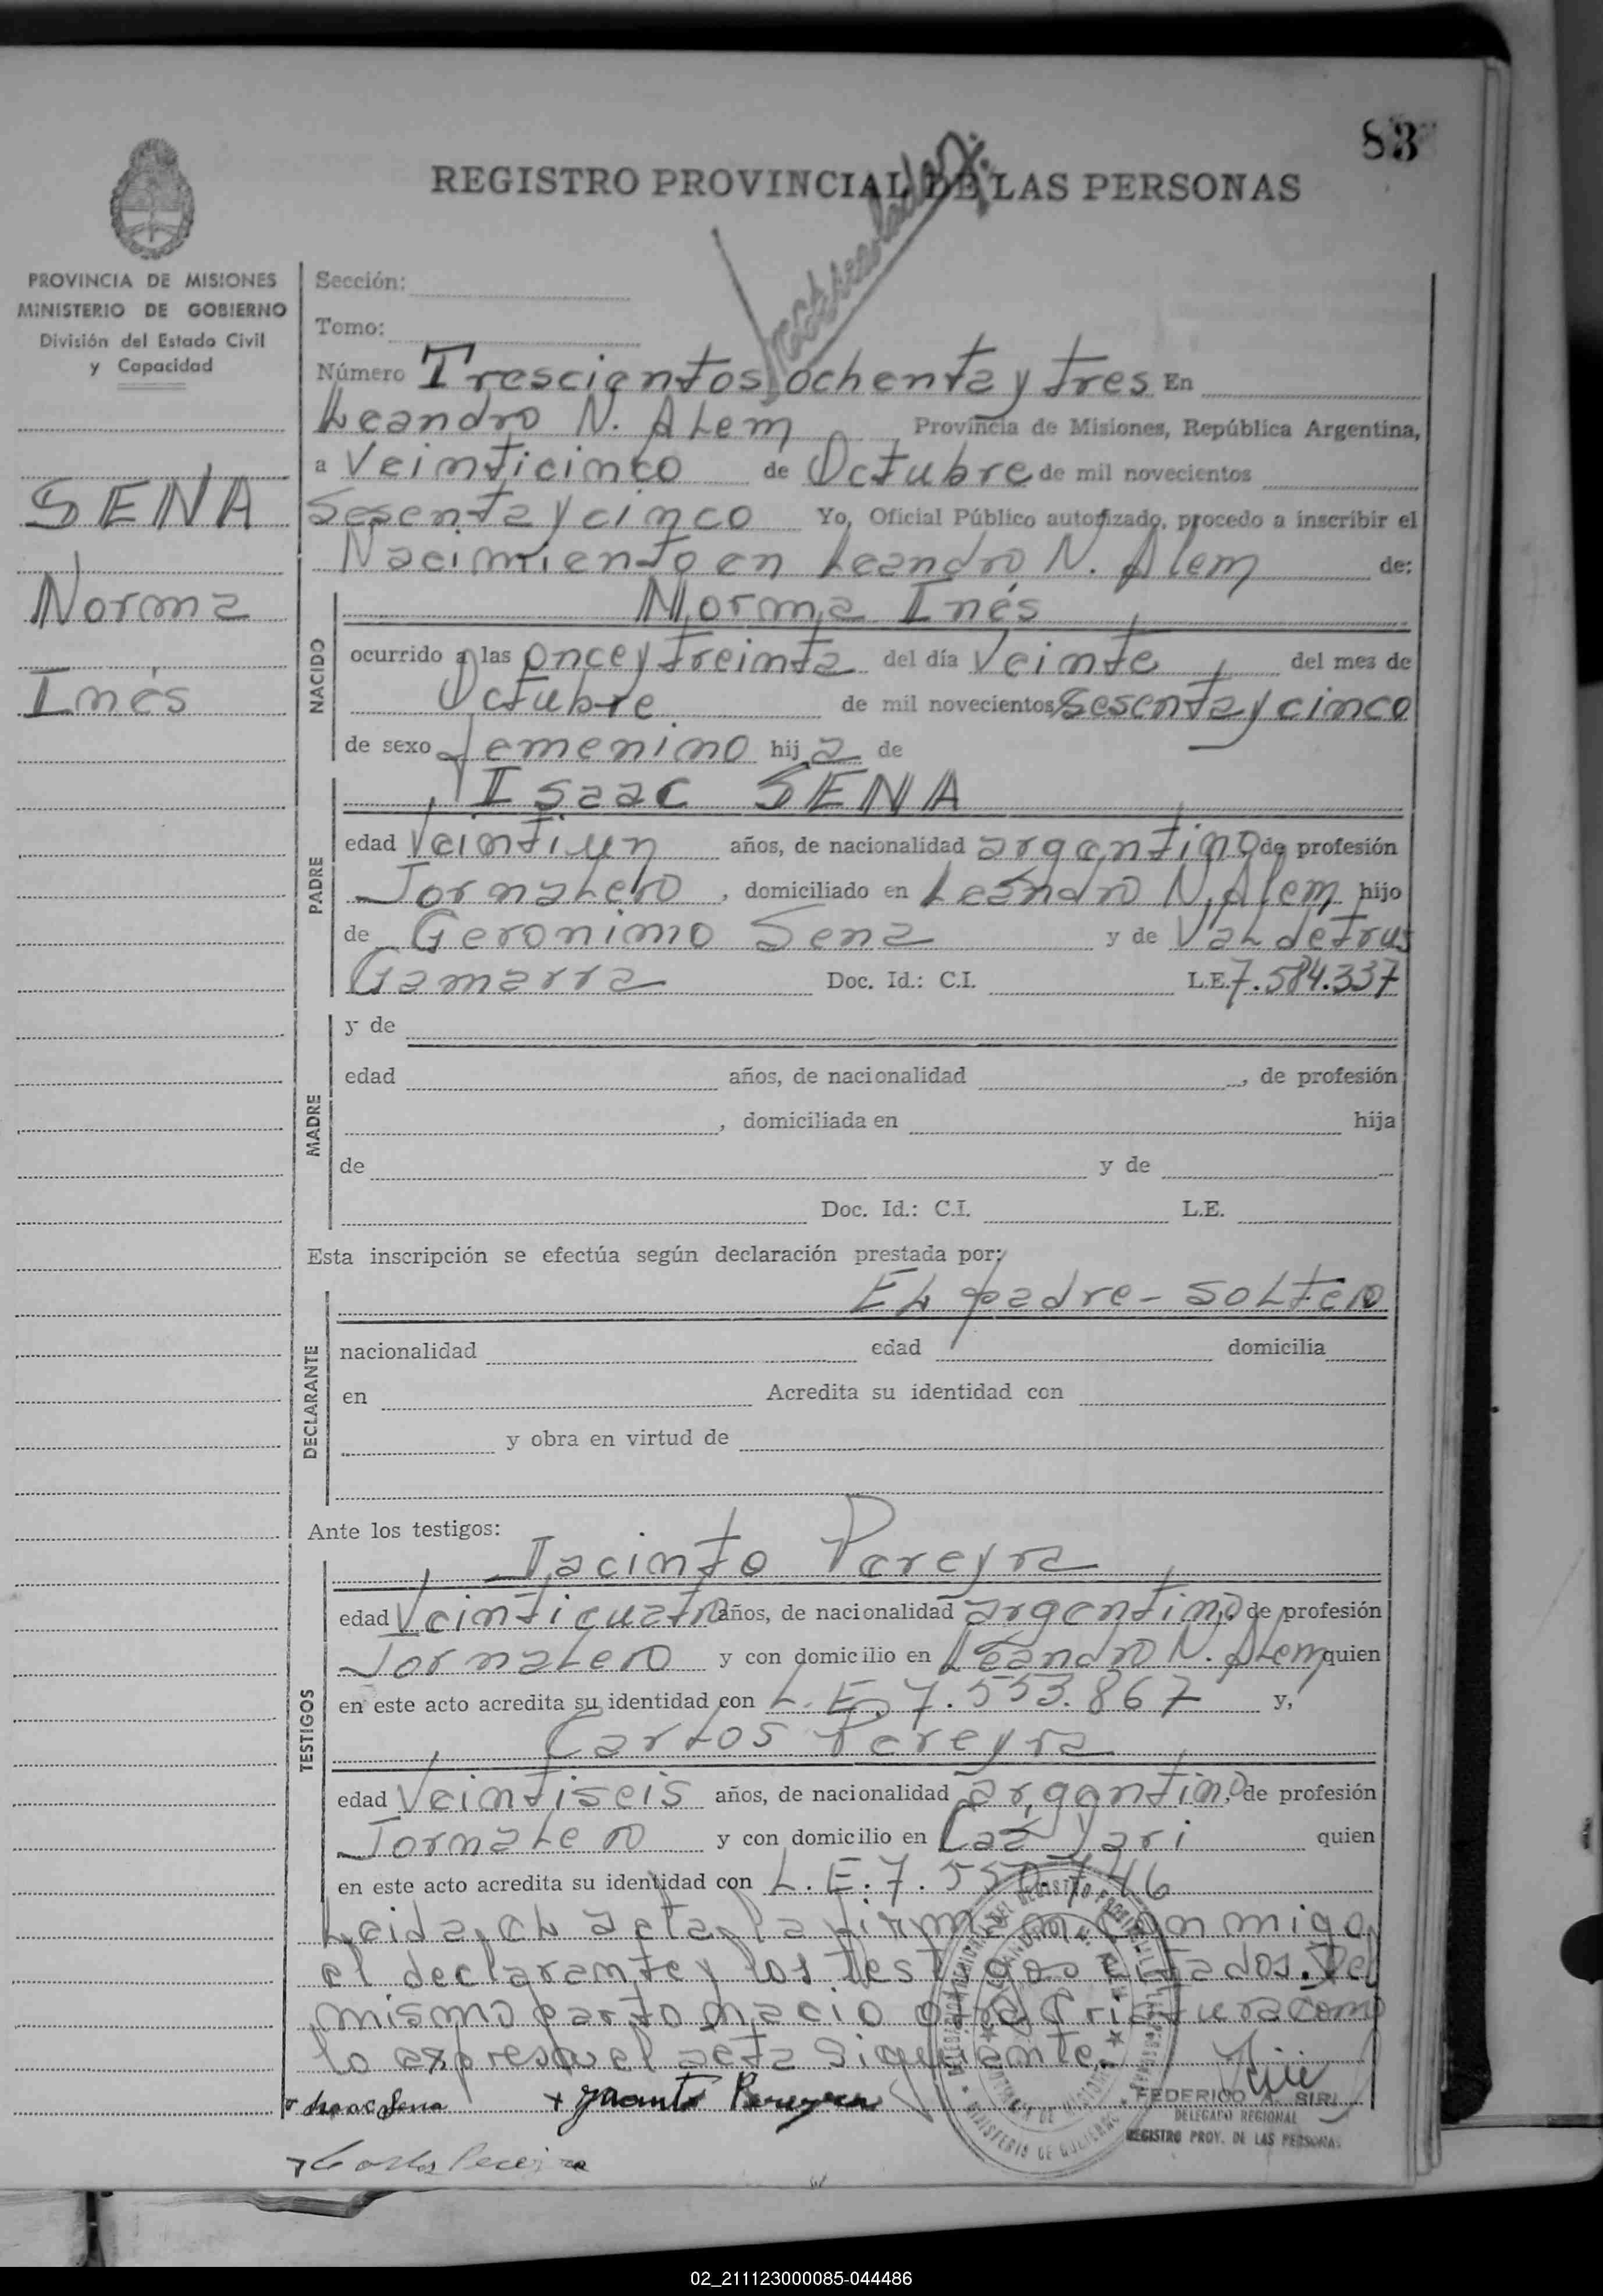 83
REGISTRO PROVINCIAL DE LAS PERSONAS
PROVINCIA DE MISIONES
MINISTERIO DE GOBIERNO
División del Estado Civil
y Capacidad
SENA
Norma
Inés
Sección:
Tomo:
Número Trescientos ochenta y tres En
Leandro N. ALem Provincia de Misiones, República Argentina,
a Veinticinco de Octubre de mil novecientos
Sesenta y cinco Yo, Oficial Público autorizado, procedo a inscribir el
Nacimiento en Leandro N. Alem de:
NACIDO
Norma Inés
ocurrido a las once y treinta del día Veinte del mes de
Octubre de mil novecientos Sesenta y cinco
de sexo femenino hij a de
PADRE
Isaac SENA
edad Veintiun años, de nacionalidad argentino de profesión
JornaLero, domiciliado en Leandro N. Alem hijo
de Geronimo Sena y de VaLdetrus
Gamarra Doc. Id.: C.I. L.E. 7.584.337
MADRE
y de
edad años, de nacionalidad, de profesión
, domiciliada en hija
de y de
Doc. Id.: C.I. L.E.
Esta inscripción se efectúa según declaración prestada por:
DECLARANTE
EL padre - soLtero
nacionalidad edad domicilia
en Acredita su identidad con
y obra en virtud de
Ante los testigos:
TESTIGOS
Jacinto Pereyra
edad Veinticuatro años, de nacionalidad argentino, de profesión
JornaLero y con domicilio en Leandro N. ALem quien
en este acto acredita su identidad con L.E. 7.553.867 y,
CarLos Pereyra
edad Veintiseis años, de nacionalidad argentino, de profesión
JornaLero y con domicilio en Caá Yari quien
en este acto acredita su identidad con L.E. 7.550.746
Leida eL acta, la firman conmigo,
el declarante y los testigos citados. Del
mismo parto nacio otra criatura como
lo expresa el acta siguiente.
Isaac Sena + Jacinto Pereyra
FEDERICO A. SIRI
DELEGADO REGIONAL
REGISTRO PROV. DE LAS PERSONAS
Carlos Pereira
02_211123000085-044486